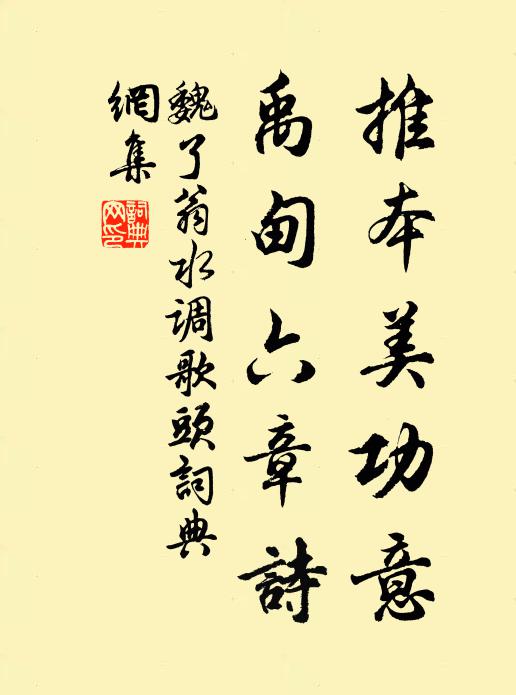 推本美功意
禹甸六章詩
魏了翁水调歌頭詞典
網集
詞典
网印